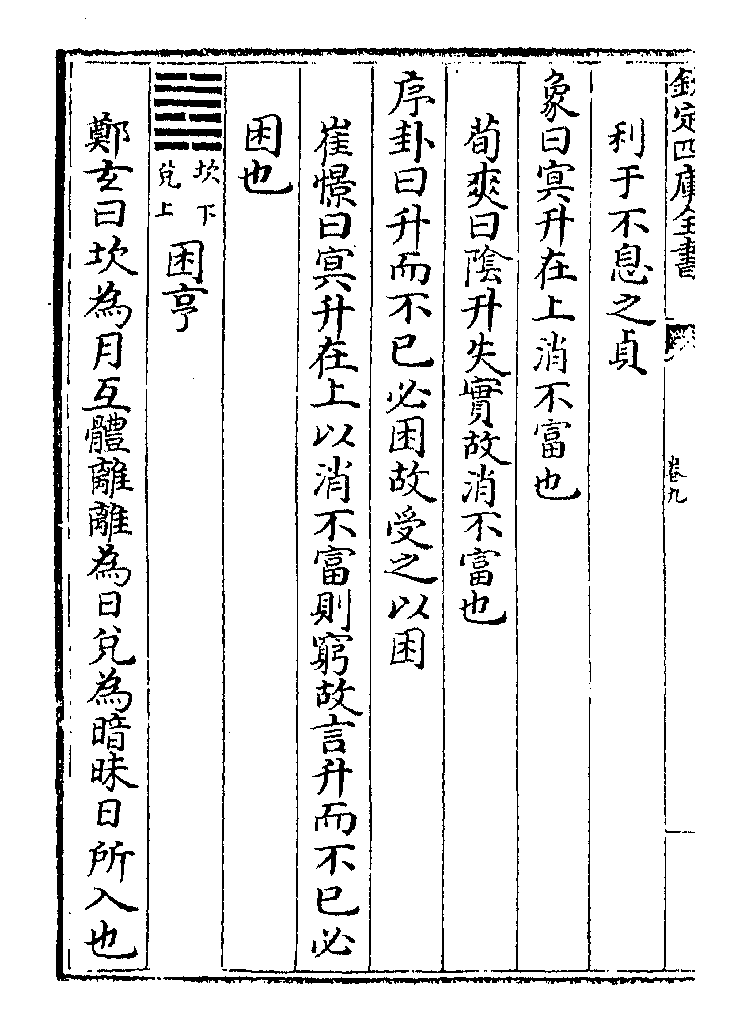 欽定四庫全書
卷九
利于不息之貞
象曰冥升在上消不富也
荀爽曰陰升失實故消不富也
序卦曰升而不已必困故受之以困
崔憬曰冥升在上以消不富則窮故言升而不已必
困也
坎下
兌上
困亨
鄭玄曰坎為月互體離離為日兌為暗昧日所入也